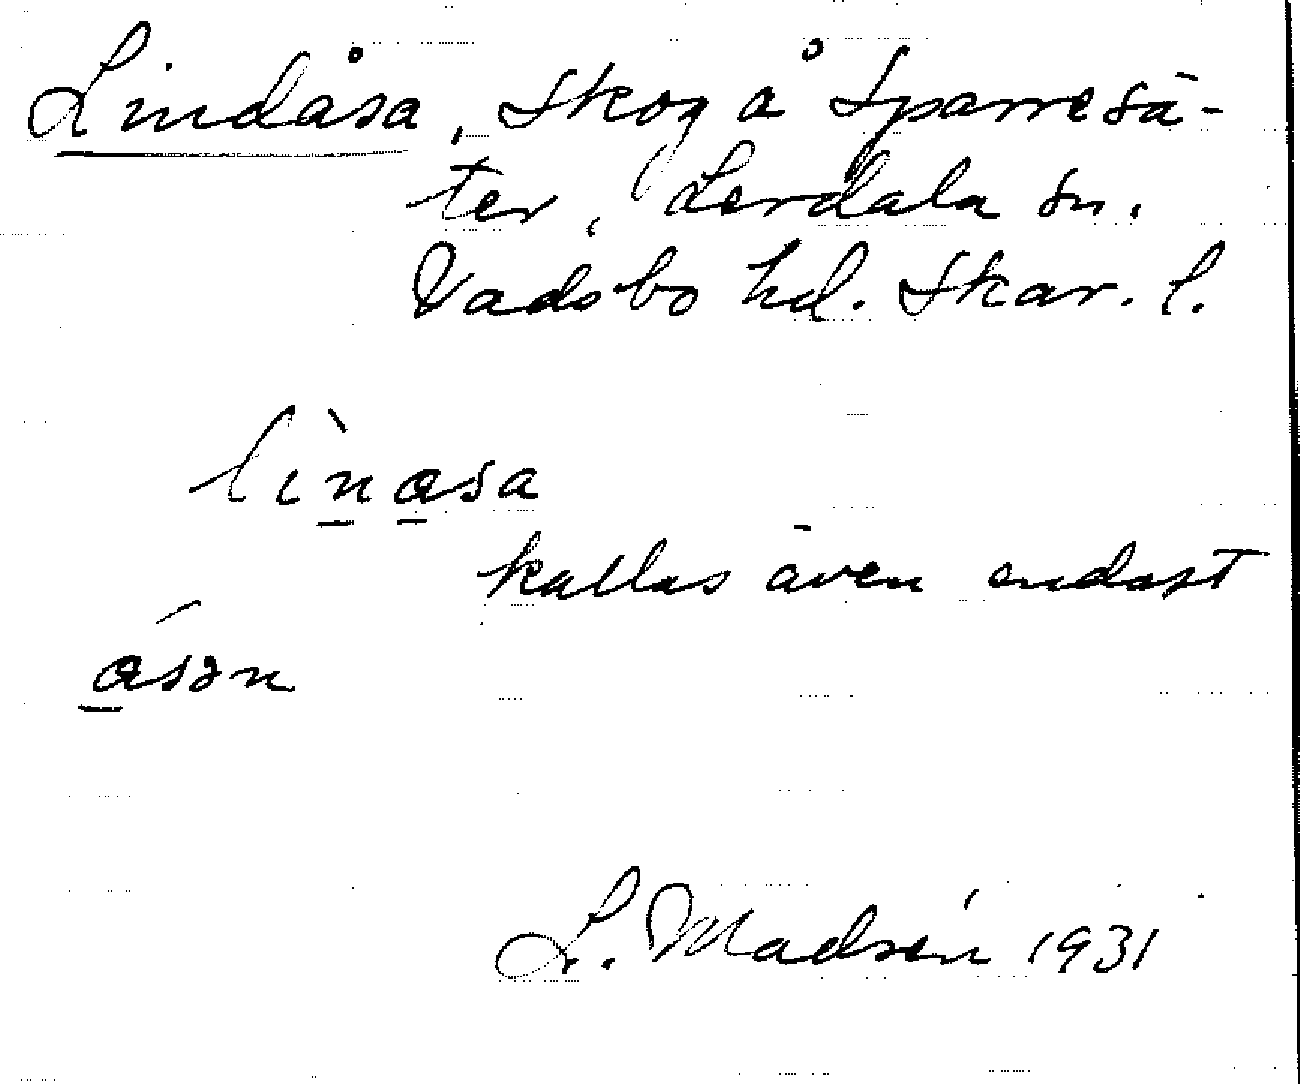 Lindåsa, Skog å Sparresä-
ter, Lerdala sn.
Vadsbo hd. Skar. l.
lìnasa
kallas även endast
ásən
L. Madsén 1931